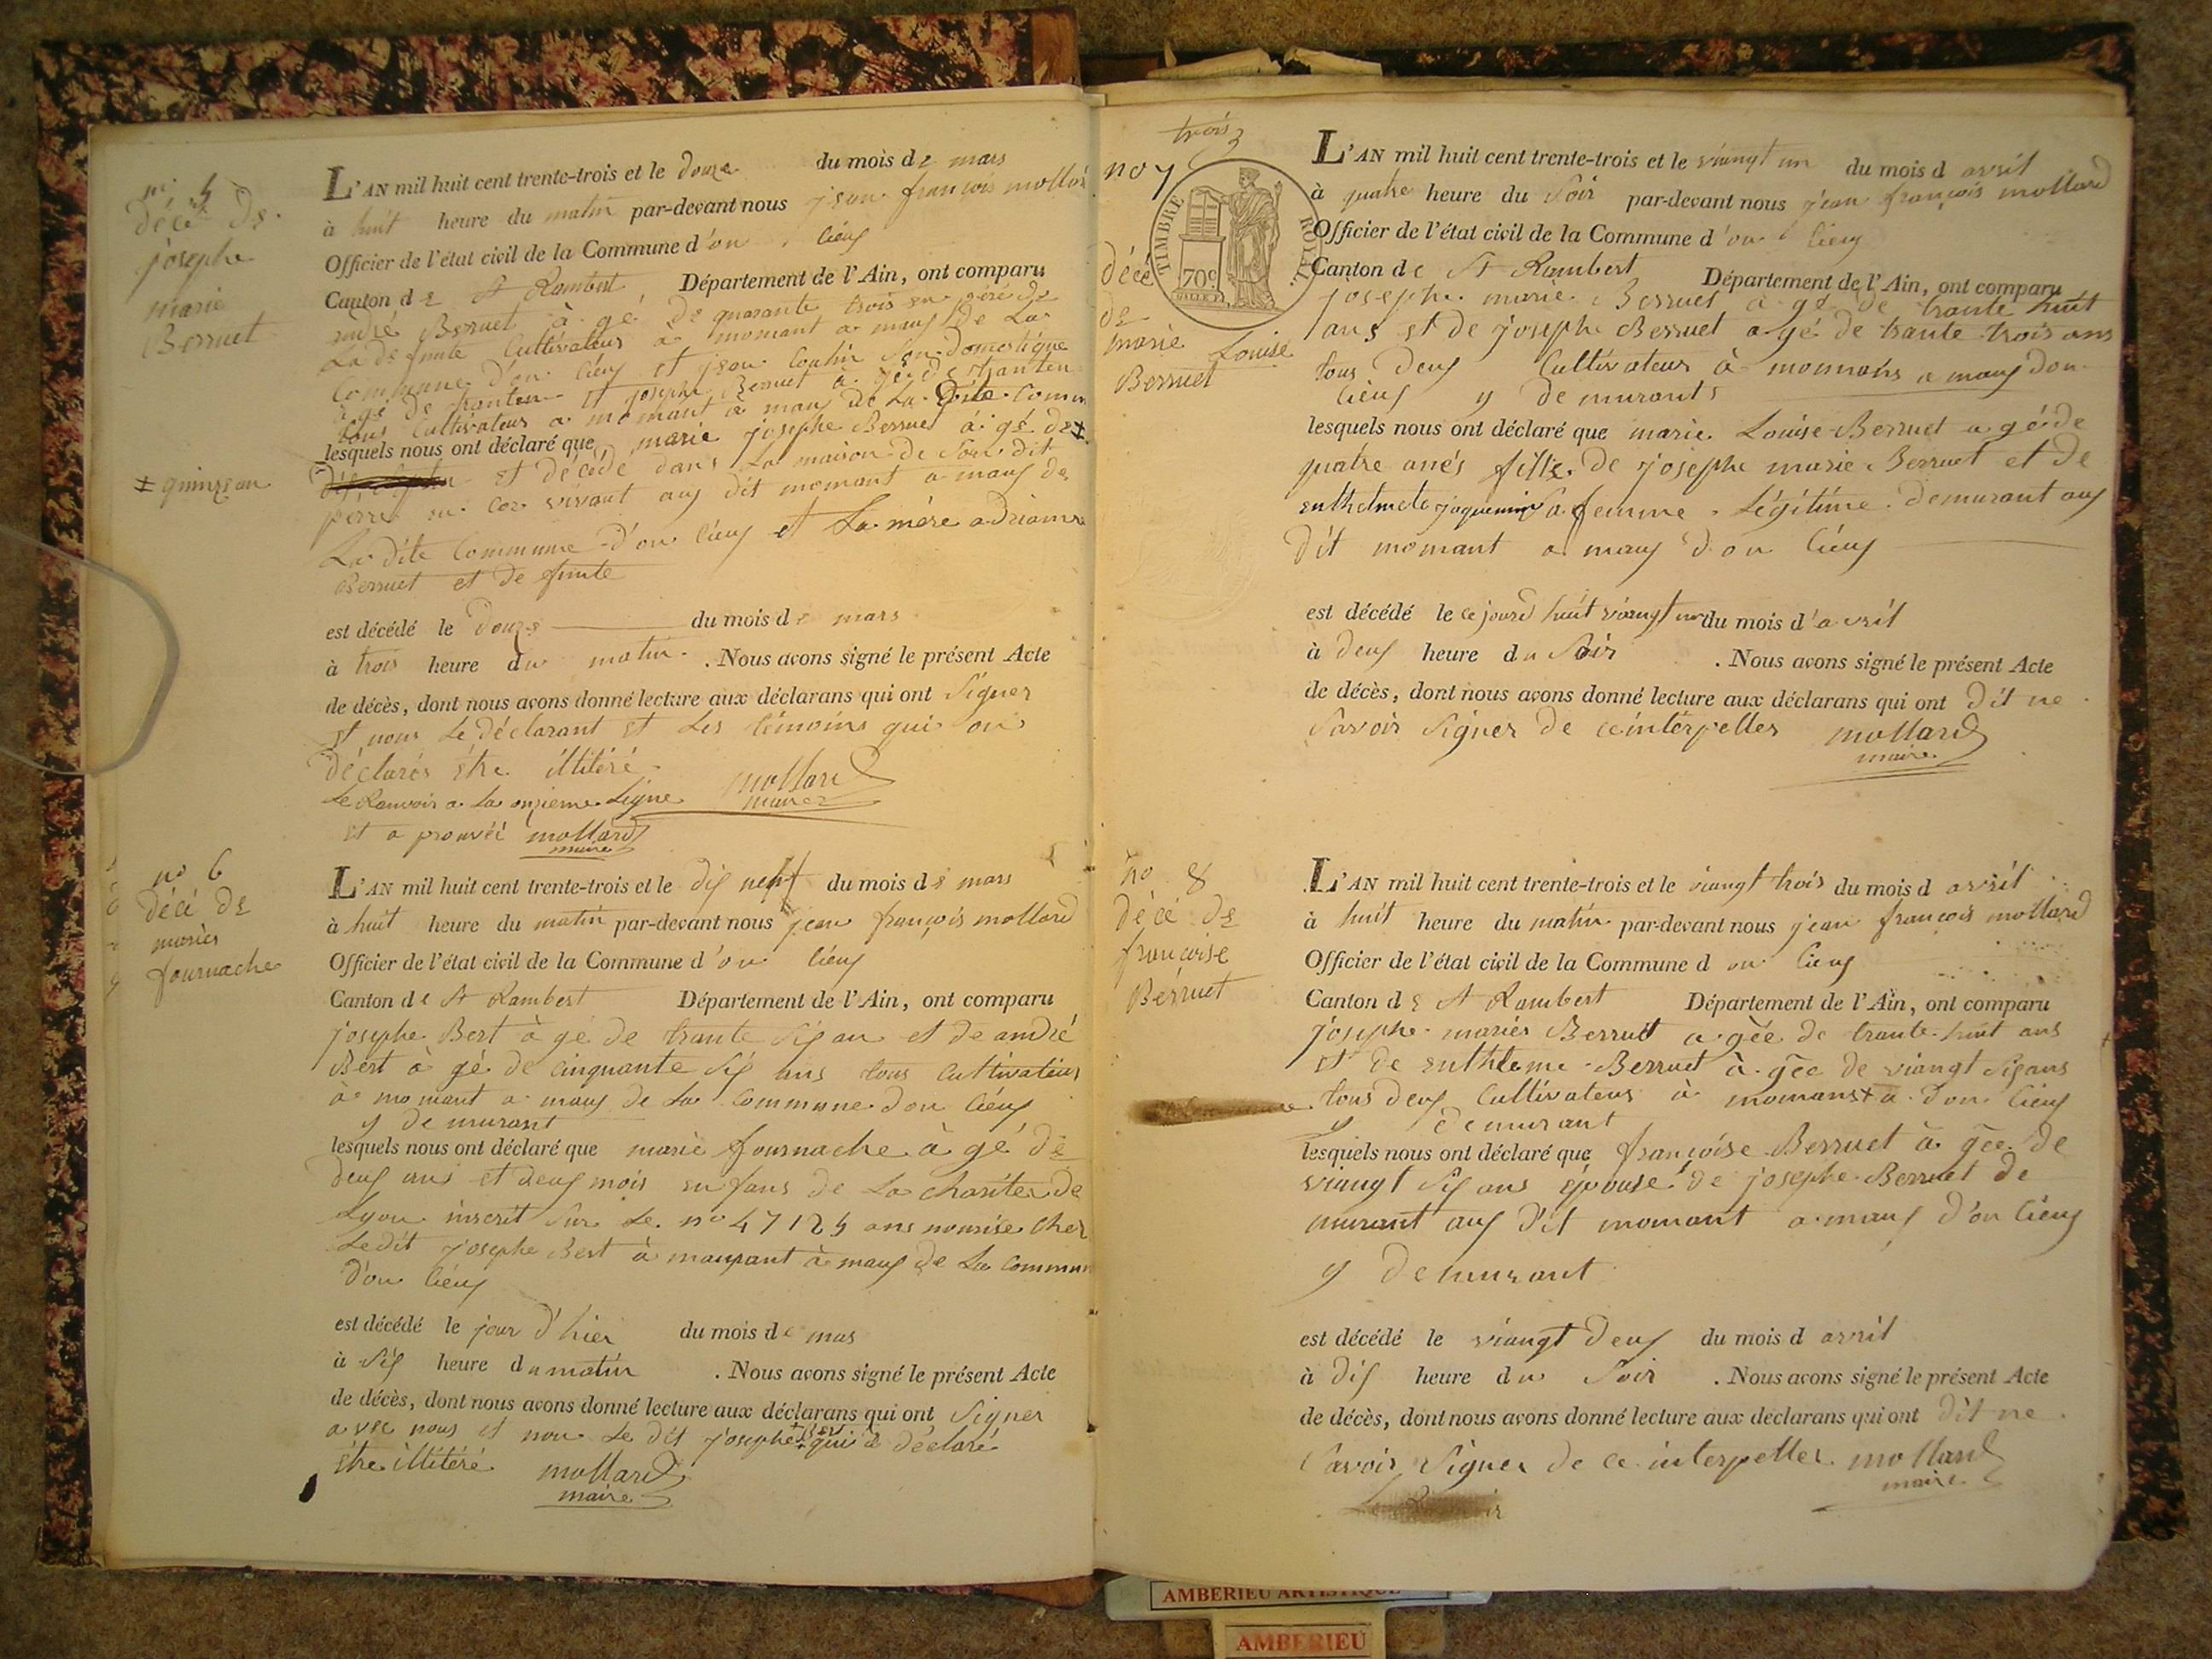 no 5
décé de
josephe
marie
Berruet
L'AN mil huit cent trente-trois et le douze du mois de mars
à huit heure du matin par-devant nous jean françois mollard
Officier de l'état civil de la Commune d'on cieux
Canton de St Rambert Département de l'Ain, ont comparu
Berruet à gé de quarante trois
La de funte Cultivateur à momant a maux de La
Commune d'on cieux et jean son domestique
à gé de et josephe Berruet à gé de
tous Cultivateur a momant a maux de La Dite Comm
lesquels nous ont déclaré que marie josephe Berruet à gé de ‡
‡ quinze an
et décédé dans La maison de Son dit
perre an cor vivant aux dit momant a maux de
La dite Commune d'on cieux et La mére
Berruet et de funte
est décédé le douze du mois de mars
à trois heure du matin . Nous avons signé le présent Acte
de décès, dont nous avons donné lecture aux déclarans qui ont Signer
et nous Le déclarant et Les témoins qui on
déclarés étre illitéré
mollard
maire
Le Ranvoir a La onzieme Ligne
et a prouvéé mollard
maire
no 6
décé de
mariés
fournache
L'AN mil huit cent trente-trois et le dix neuf du mois de mars
à huit heure du matin par-devant nous jean françois mollard
Officier de l'état civil de la Commune d'on cieux
Canton de St Rambert Département de l'Ain, ont comparu
josephe Bert à gé de trante Six an et de andré
Bert à gé de cinquante Six ans tous cultivateurs
à momant a maux de La Commune d'on cieux
y de murant
lesquels nous ont déclaré que marie fournache à gé de
deux ans et deux mois en fans de La chariter de
Lyon inscrit Sur Le no 47125 ans nourise cher
Le dit josephe Bert à à maux de La Commun
d'on cieux
est décédé le jour d'hier du mois de mas
à Six heure du matin . Nous avons signé le présent Acte
de décès, dont nous avons donné lecture aux déclarans qui ont Signer
avec nous et non Le dit josephe Bert qui a déclaré
étre illitéré mollard
maire
trois
no 7
TIMBRE ROYAL
70c
décé
de
marie Louise
Berruet
L'AN mil huit cent trente-trois et le viangt un du mois d avril
à quatre heure du Soir par-devant nous jéan françois mollard
Officier de l'état civil de la Commune d'on cieux
Canton de St Rambert Département de l'Ain, ont comparu
josephe marie Berruet a gé de trante huit
ans et de josephe Berruet a gé de trante trois ans
tous deux Cultivateur à momans a maux d'on
cieux y de murants
lesquels nous ont déclaré que marie Louise Berruet a gé de
quatre anés fille de josephe marie Berruet et de
enthelmete joquemin Sa femme Légitime demurant aux
dit momant a maux d'on cieux
est décédé le ce jourd huit viangt un du mois d'avril
à deux heure du Soir . Nous avons signé le présent Acte
de décès, dont nous avons donné lecture aux déclarans qui ont dit ne
Savoir Signer de ce intérpelles mollard
maire
no 8
décé de
françoise
Berruet
L'AN mil huit cent trente-trois et le viangt trois du mois d avril
à huit heure du matin par-devant nous jéan françois mollard
Officier de l'état civil de la Commune d on cieux
Canton de St Rambert Département de l'Ain, ont comparu
josephe mariés Berruet a gée de trante huit ans
et de enthleme Berruet à gée de viangt Six ans
tous deux Cultivateurs à momans a d'on cieux
y demurant
lesquels nous ont déclaré que françoise Berruet à gée de
viangt Six ans épousé de josephe Berruet de
murant aux dit momant a maux d'on cieux
y demurant
est décédé le viangt deux du mois d avril
à dix heure du Soir . Nous avons signé le présent Acte
de décès, dont nous avons donné lecture aux déclarans qui ont dit ne
Savoir Signer de ce interpeller mollard
maire
AMBERIEU ARTISTIQUE
AMBERIEU